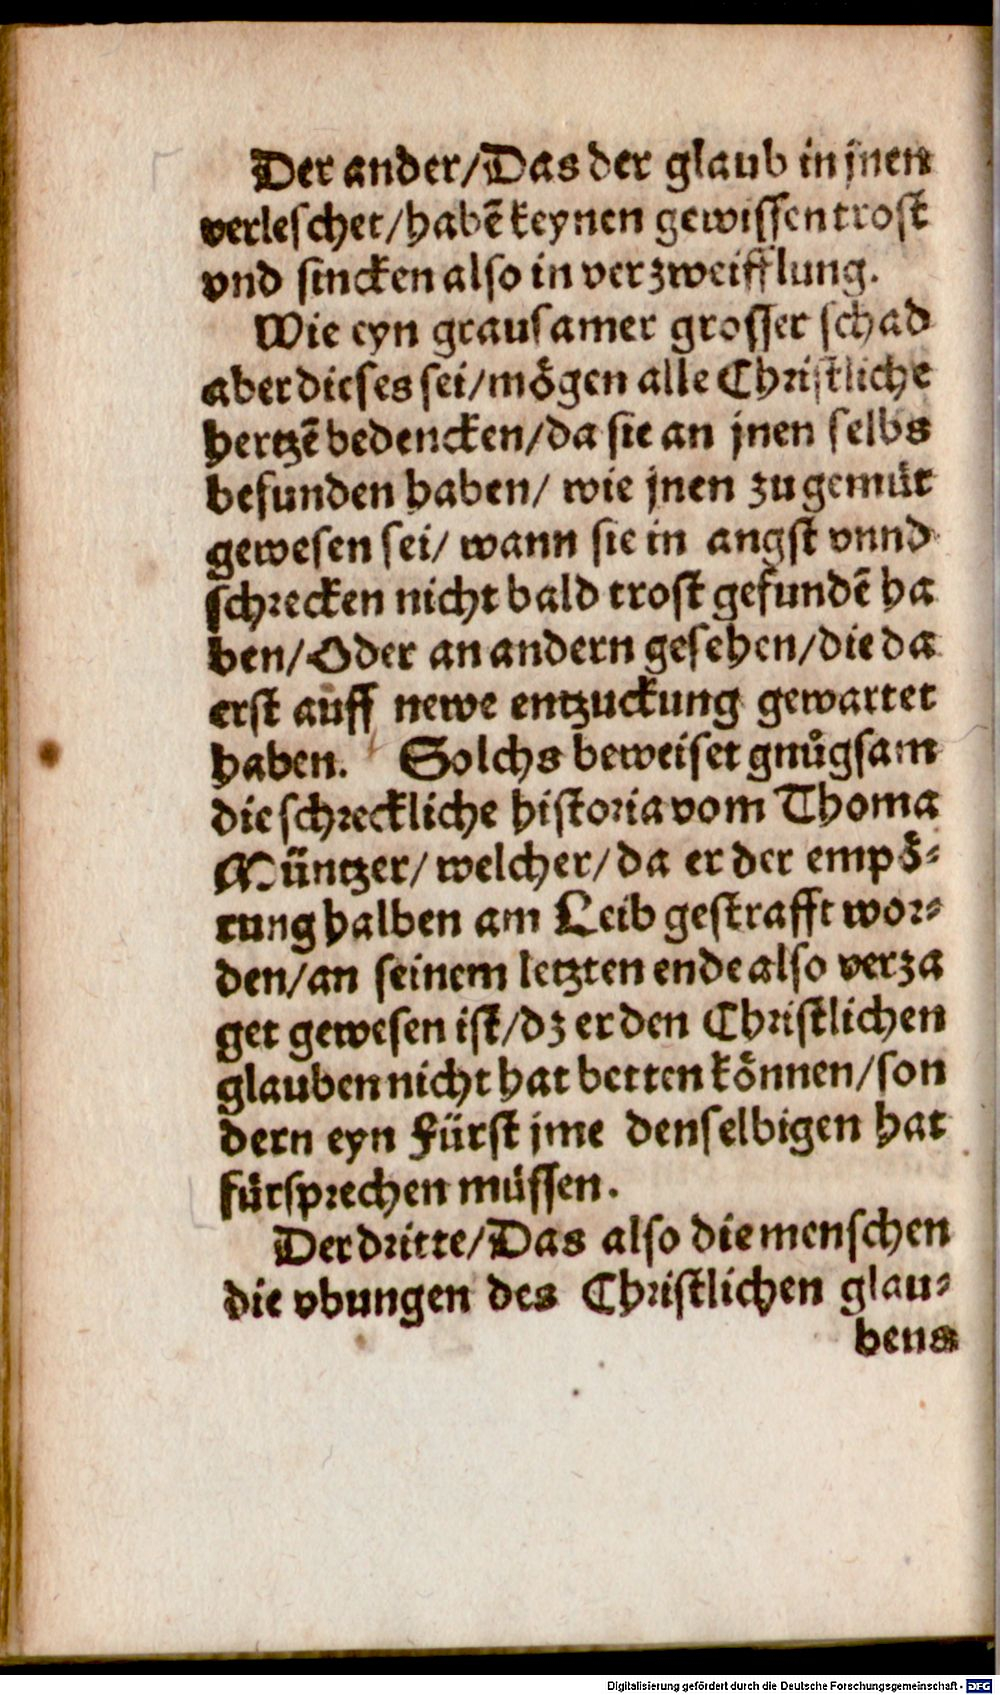 Der ander/Das der glaub in jnen
verleschet/habē keynen gewissen trost
vnd sincken also in verzweifflung.
Wie eyn grausamer grosser schad
aber dieses sei/mögen alle Christliche
hertzē bedencken/da sie an jnen selbs
befunden haben/ wie jnen zu gemüt
gewesen sei/ wann sie in angst vnnd
schrecken nicht bald trost gefundē ha
ben/Oder an andern gesehen/die da
erst auff newe entzuckung gewartet
haben. Solchs beweiset gnůgsam
die schreckliche historia vom Thoma
Müntzer/ welcher/ da er der empö⸗
rung halben am Leib gestrafft wor⸗
den/an seinem letzten ende also verza
get gewesen ist/dz er den Christlichen
glauben nicht hat betten können/son
dern eyn Fürst jme denselbigen hat
fürsprechen müssen.
Der dritte/Das also die menschen
die vbungen des Christlichen glau⸗
bens
Digitalisierung gefördert durch die Deutsche Forschungsgemeinschaft - DFG